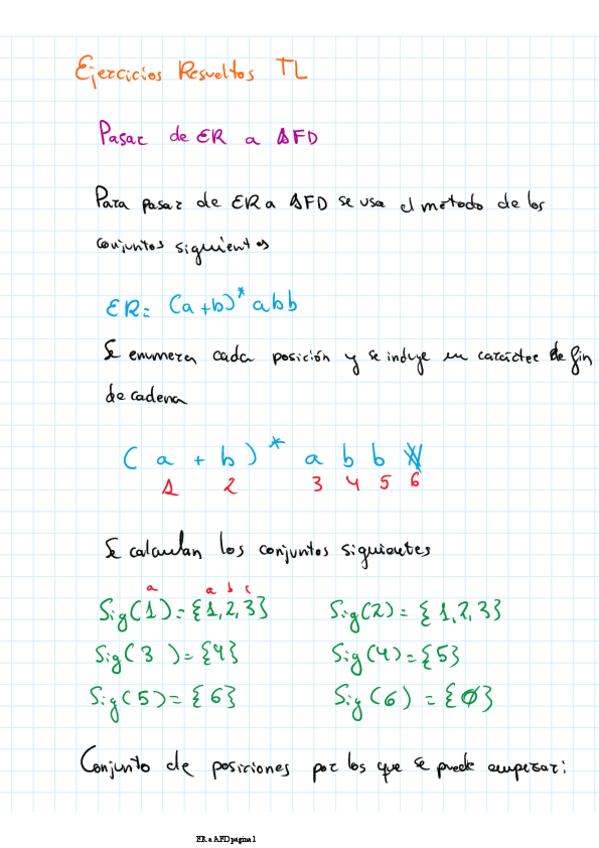 Ejercicios Resueltos TL
Pasar de ER a AFD
Para pasar de ER a AFD se usa el metodo de los
conjuntos siguientes
ER= (a+b)* abb
Se enumera cada posición y se incluye un carácter de fin
de cadena
( a + b )* a b b
1 2 3 4 5 6
Se calculan los conjuntos siguientes
a a b c
Sig(1)={1,2,3} Sig(2)={1,2,3}
Sig(3)={4} Sig(4)={5}
Sig(5)={6} Sig(6)={Ø}
Conjunto de posiciones por los que se puede empezar:
ER a AFD página 1